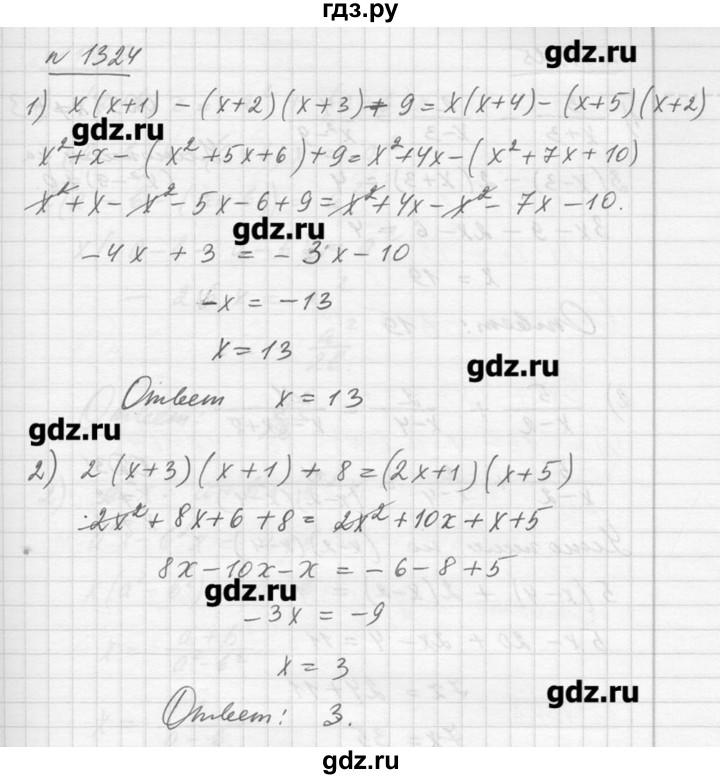 гдз.ру
n 1324
gdz.ru
1) x(x+1) - (x+2)(x+3) + 9 = x(x+4) - (x+5)(x+2)
gdz.ru
x² + x - (x² + 5x + 6) + 9 = x² + 4x - (x² + 7x + 10)
x² + x - x² - 5x - 6 + 9 = x² + 4x - x² - 7x - 10.
gdz.ru
-4x + 3 = -3x - 10
-x = -13
x = 13
gdz.ru
Ответ x = 13
gdz.ru
2) 2(x+3)(x+1) + 8 = (2x+1)(x+5)
2x² + 8x + 6 + 8 = 2x² + 10x + x + 5
8x - 10x - x = -6 - 8 + 5
gdz.ru
-3x = -9
x = 3
gdz.ru
Ответ: 3.
gdz.ru